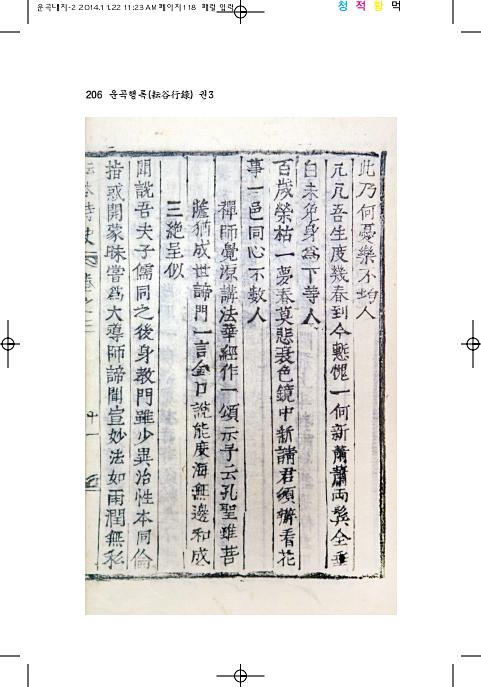 운곡내지-2 2014.11.22 11:23 AM 페이지118
청 적 황 먹
206 운곡행록(耘谷行錄) 권3
此乃何憂樂不均人
兀兀吾生度幾春到今慙愧一何新蕭蕭兩鬢全垂
白未免身爲下等人
百歲榮枯一夢春莫悲衰色鏡中新請君須辦看花
事一邑同心不數人
禪師覺源講法華經作一頌示予云孔聖雖昔
瞻猶成世諦門一言金口說能度海無邊和成
三絶呈似
聞說吾夫子儒同之後身敎門雖少異治性本同倫
指惑開蒙昧嘗爲大導師諦聞宣妙法如雨潤無私